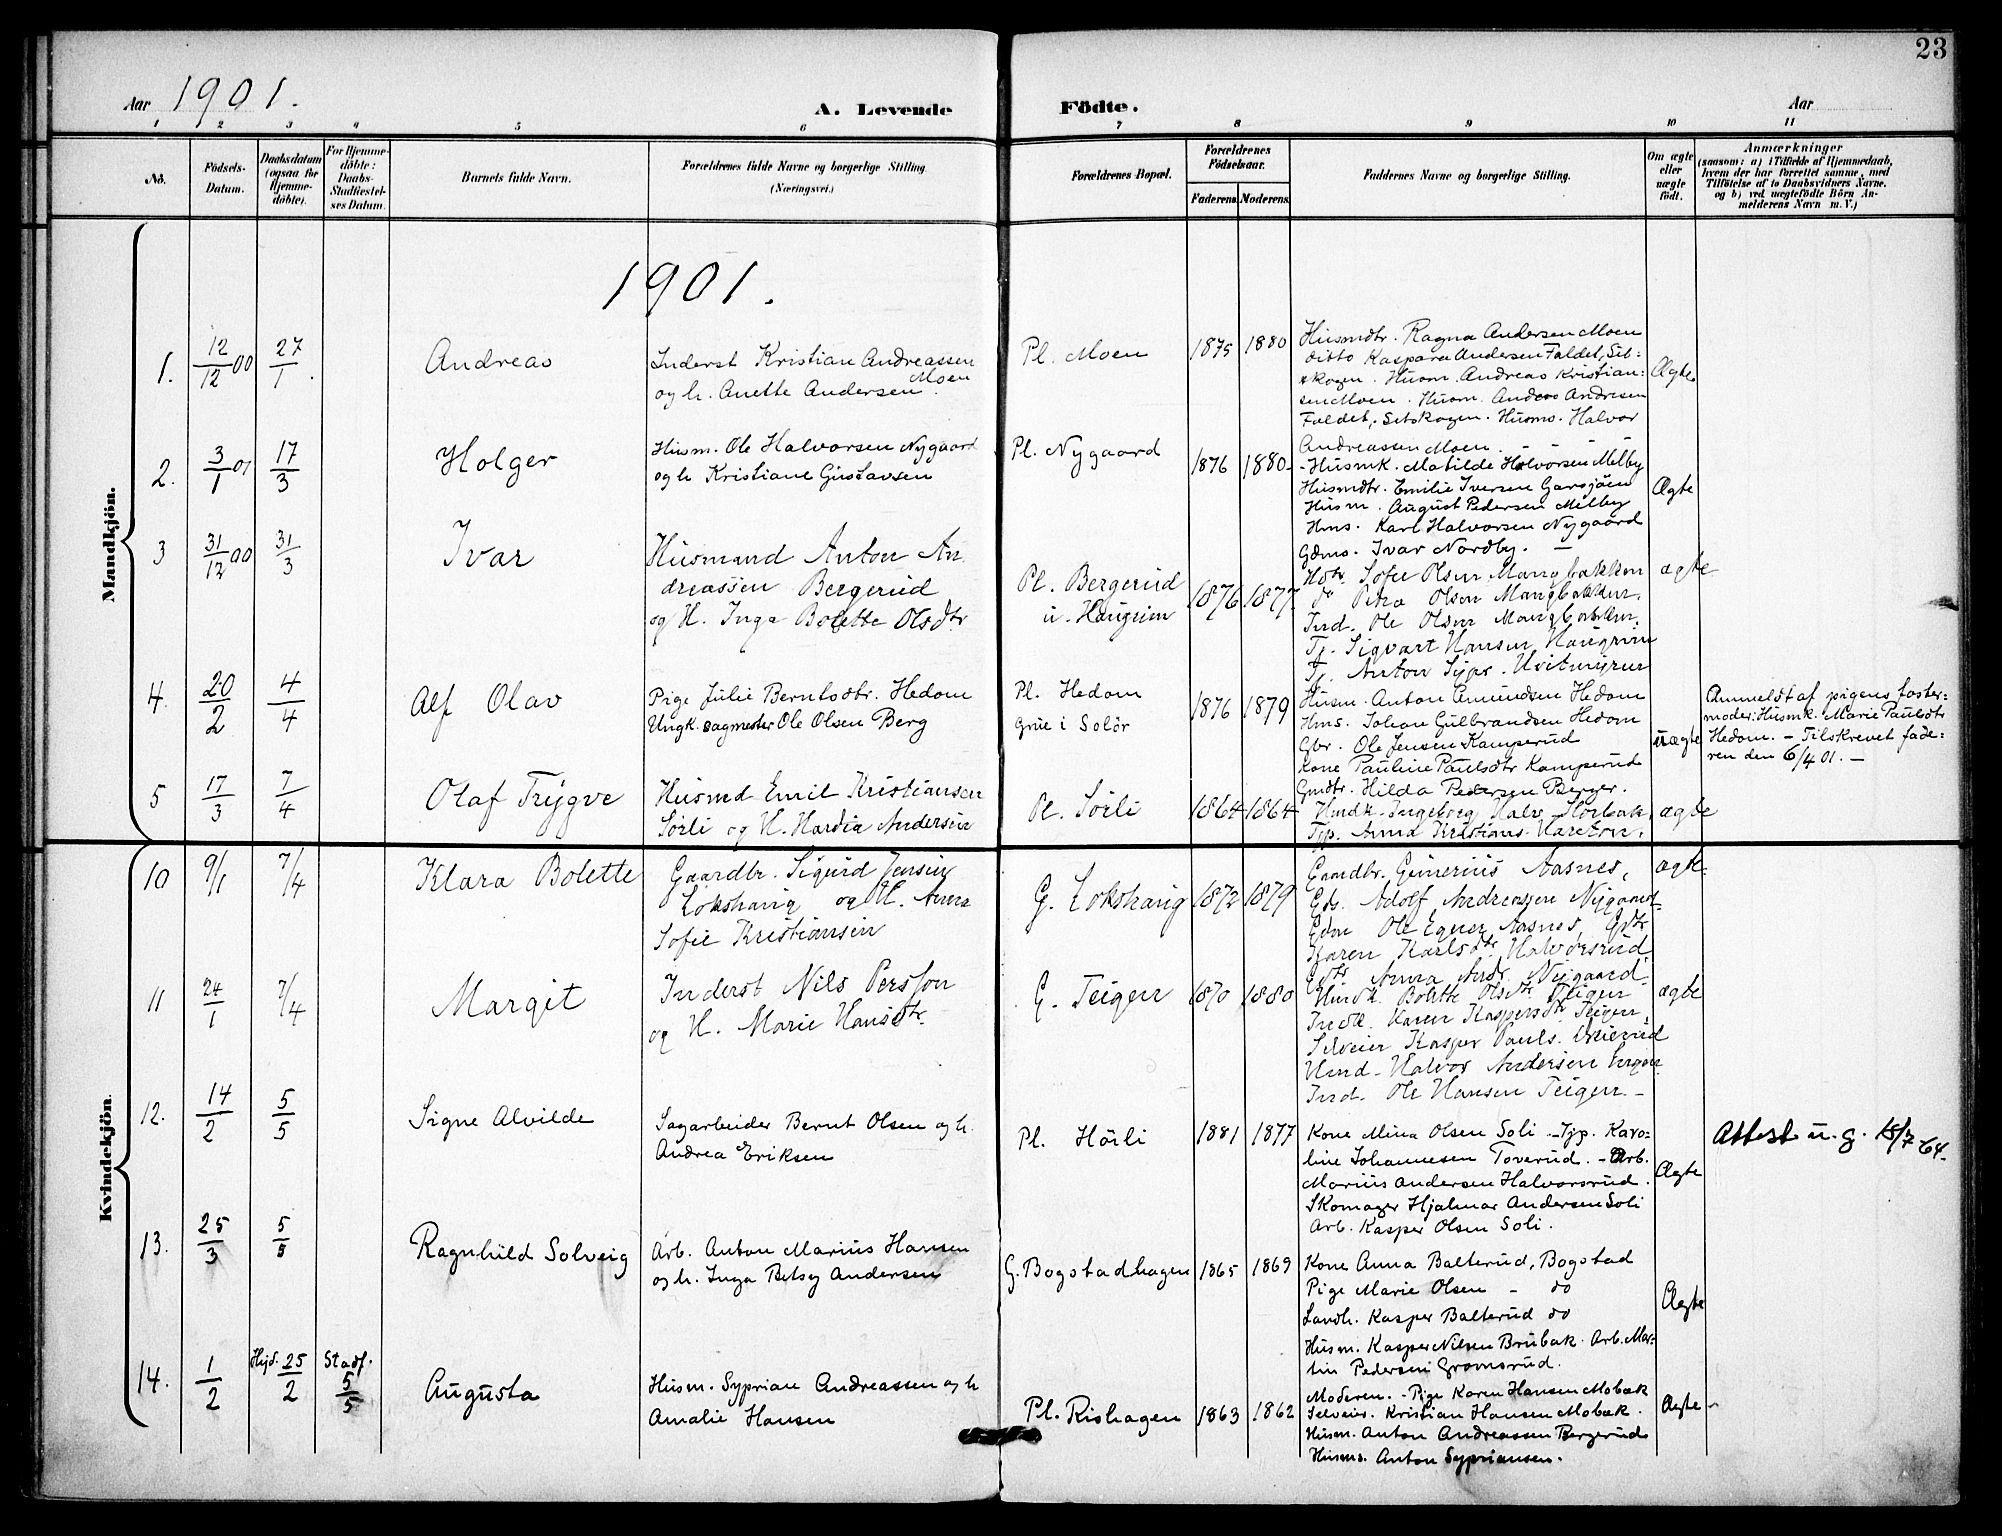 23
Aar 1901.
A. Levende Födte.
Aar
1 2 3 4 5 6 7 8 9 10 11
No.
Födsels-
Datum.
Daabsdatum
(ogsaa for
Hjemme-
döbte).
For Hjemme-
döbte:
Daabs-
Stadfæstel-
ses Datum.
Barnets fulde Navn.
Forældrenes fulde Navne og borgerlige Stilling
(Næringsvei.)
Forældrenes Bopæl.
Forældrenes
Födselsaar.
Faderens. Moderens.
Faddernes Navne og borgerlige Stilling.
Om ægte
eller
uægte
födt.
Anmærkninger
(saasom: a) i Tilfælde af Hjemmedaab,
hvem der har forrettet samme, med
Tilföielse af to Daabsvidners Navne.
og b) ved uægtefödte Börn An-
melderens Navn m. V.)
Mandkjön.
1901.
1. 12/12 00 27/1. Andreas
Inderst Kristian Andreassen
Moen
og h. Anette Andersen.
Pl. Moen 1875 1880
Husmdtr. Ragna Andersen Moen
ditto Kaspara Andersen Faldet, Set:
skogen. Husm. Andreas Kristian:
sen Moen. Husm. Anders Andresen
Faldet, Setskogen. Husms. Halvor
Andreassen Moen.
Ægte
2. 3/1 01 17/3 Holger
Husm. Ole Halvorsen Nygaard
og h. Kristiane Gustavsen
Pl. Nygaard 1876 1880
- Husmk. Matilde Halvorsen Melby
Husmdtr. Emilie Iversen Garsjöen
Husm. August Pedersen Melby
Hms. Karl Halvorsen Nygaard
Gdms. Ivar Nordby. —
Ægte
3 31/12 00 31/3 Ivar
Husmand Anton An
dreassen Bergerud
og H. Inga Bolette Olsdtr
Pl. Bergerud
u. Haugrim
1876 1877
Hdtr. Sofie Olsen Mangbakken
do Petra Olsen Mangbakken.
Ind. Ole Olsen Mangbakken.
Tj. Sigvart Hansen Haugrim
Tj. Anton Sypr. Hvitmyren
ægte
4. 20/2 4/4 Alf Olav
Pige Julie Berntsdtr. Hedom
Ungk. sagmester Ole Olsen Berg
Pl. Hedom
Grue i Solör
1876 1879
Husm. Anton Amundsen Hedom
Hms. Johan Gulbrandsen Hedom
Gbr. Ole Jensen Kamperud
Kone Pauline Paulsdtr Kamperud
Gmdtr. Hilda Pedersen Berger.
uægte
Anmeldt af pigens foster:
moder: Husmk. Marie Paulsdtr
Hedom. — Tilskrevet fade:
ren den 6/4 01. —
5 17/3 7/4 Olaf Trygve
Husmd Emil Kristiansen
Sörli og H. Hardia Andersen
Pl. Sörli 1864 1864
Husmdk. Ingeborg Halv.
Tjp. Anna Kristians.
ægte
Kvindekjön.
10 9/1 7/4 Klara Bolette
Gaardbr. Sigurd Jensen
Lokshaug og H. Anna
Sofie Kristiansen
G. Lokshaug 1872 1879
Gaardbr. Gunerius Aasnes,
Gds. Adolf Andreassen Nygaard
Gdm Ole Egner Aasnes, Gdtr
Karen Karlsdtr. Halvorsrud,
Gdtr Anna Andr. Nygaard
ægte
11 24/1 7/4 Margit
Inderst Nils Persson
og H. Marie Hansdtr.
G. Teigen 1870 1880
Husdk. Bolette Olsdtr Teigen
Indk. Karen Kaspersdtr Teigen,
Selveier Kasper Pauls.
Hmd. Halvor Andersen
Ind. Ole Hansen Teigen —
ægte
12. 14/2 5/5 Signe Alvilde
Sagarbeider Bernt Olsen og h.
Andrea Eriksen
Pl. Hörli 1881 1877
Kone Mina Olsen Soli — Tjp. Karo:
line Johannesen Toverud. — Arb.
Marius Andersen Halvorsrud.
Skomager Hjalmar Andersen Soli
Arb. Kasper Olsen Soli.
Ægte
Attest u. g. 15/7 64.
13. 25/3 5/5 Ragnhild Solveig
Arb. Anton Marius Hansen
og h. Inga Betsy Andersen
G. Bogstadhagen 1865 1869
Kone Anna Balterud, Bogstad
Pige Marie Olsen — do
Landh. Kasper Balterud do
Husm. Kasper Nilsen Brubak. Arb. Mar:
tin Pedersen Gromsrud.
Ægte
14. 1/2 Hjd. 25/2 Stadf. 5/5 Augusta
Husm. Syprian Andreassen og h
Amalie Hansen
Pl. Rishagen 1863 1862
Moderen. — Pige Karen Hansen Mobæk
Selveier. Kristian Hansen Mobæk.
Husm. Anton Andreassen Bergerud
Husms. Anton Sypriansen.
Ægte